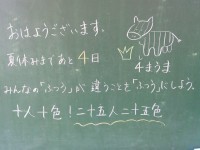 おはようございます。
夏休みまであと4日
4まうま
みんなの「ふつう」が違うことを「ふつう」にしよう。
十人十色！二十五人二十五色